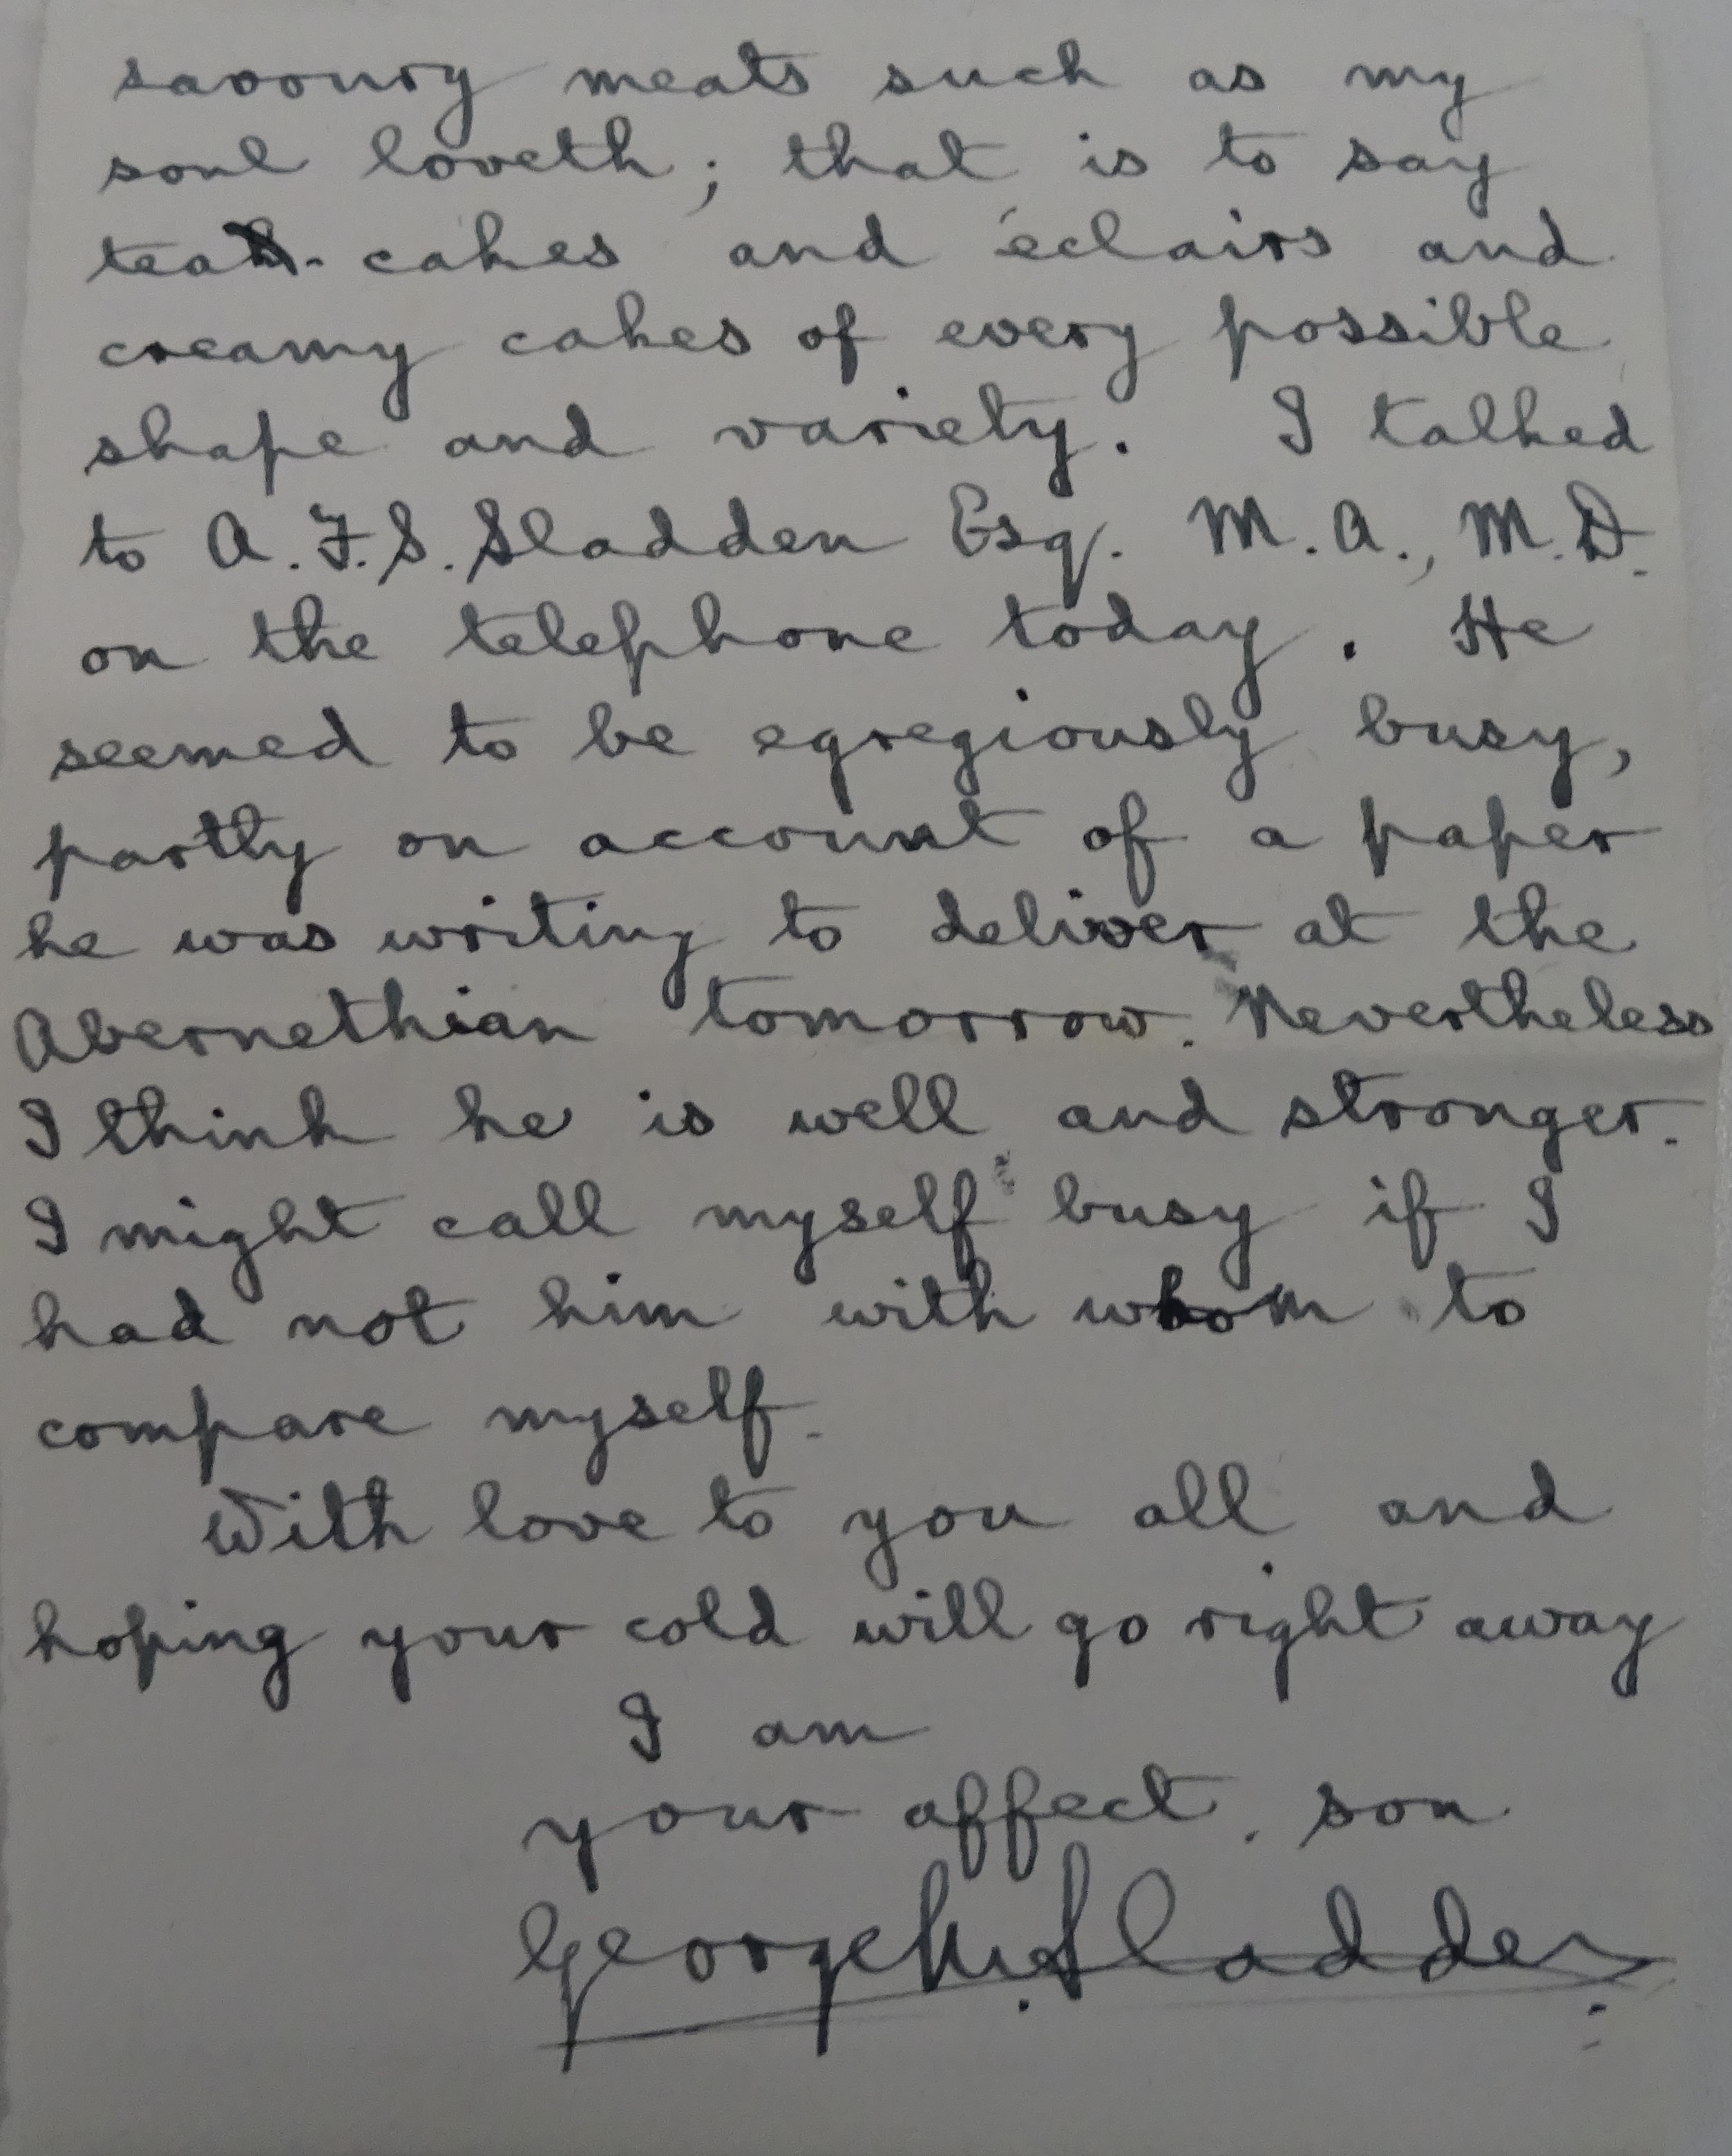 savoury meats such as my
soul loveth; that is to say
tea-cakes and éclairs and
creamy cakes of every possible
shape and variety. I talked
to A.F.S. Sladden Esq. M.A., M.D.
on the telephone today. He
seemed to be egregiously busy,
partly on account of a paper
he was writing to deliver at the
Abernethian tomorrow. Nevertheless
I think he is well and stronger.
I might call myself busy if I
had not him with whom to
compare myself.
With love to you all and
hoping your cold will go right away
I am
your affect. son
George Sladden